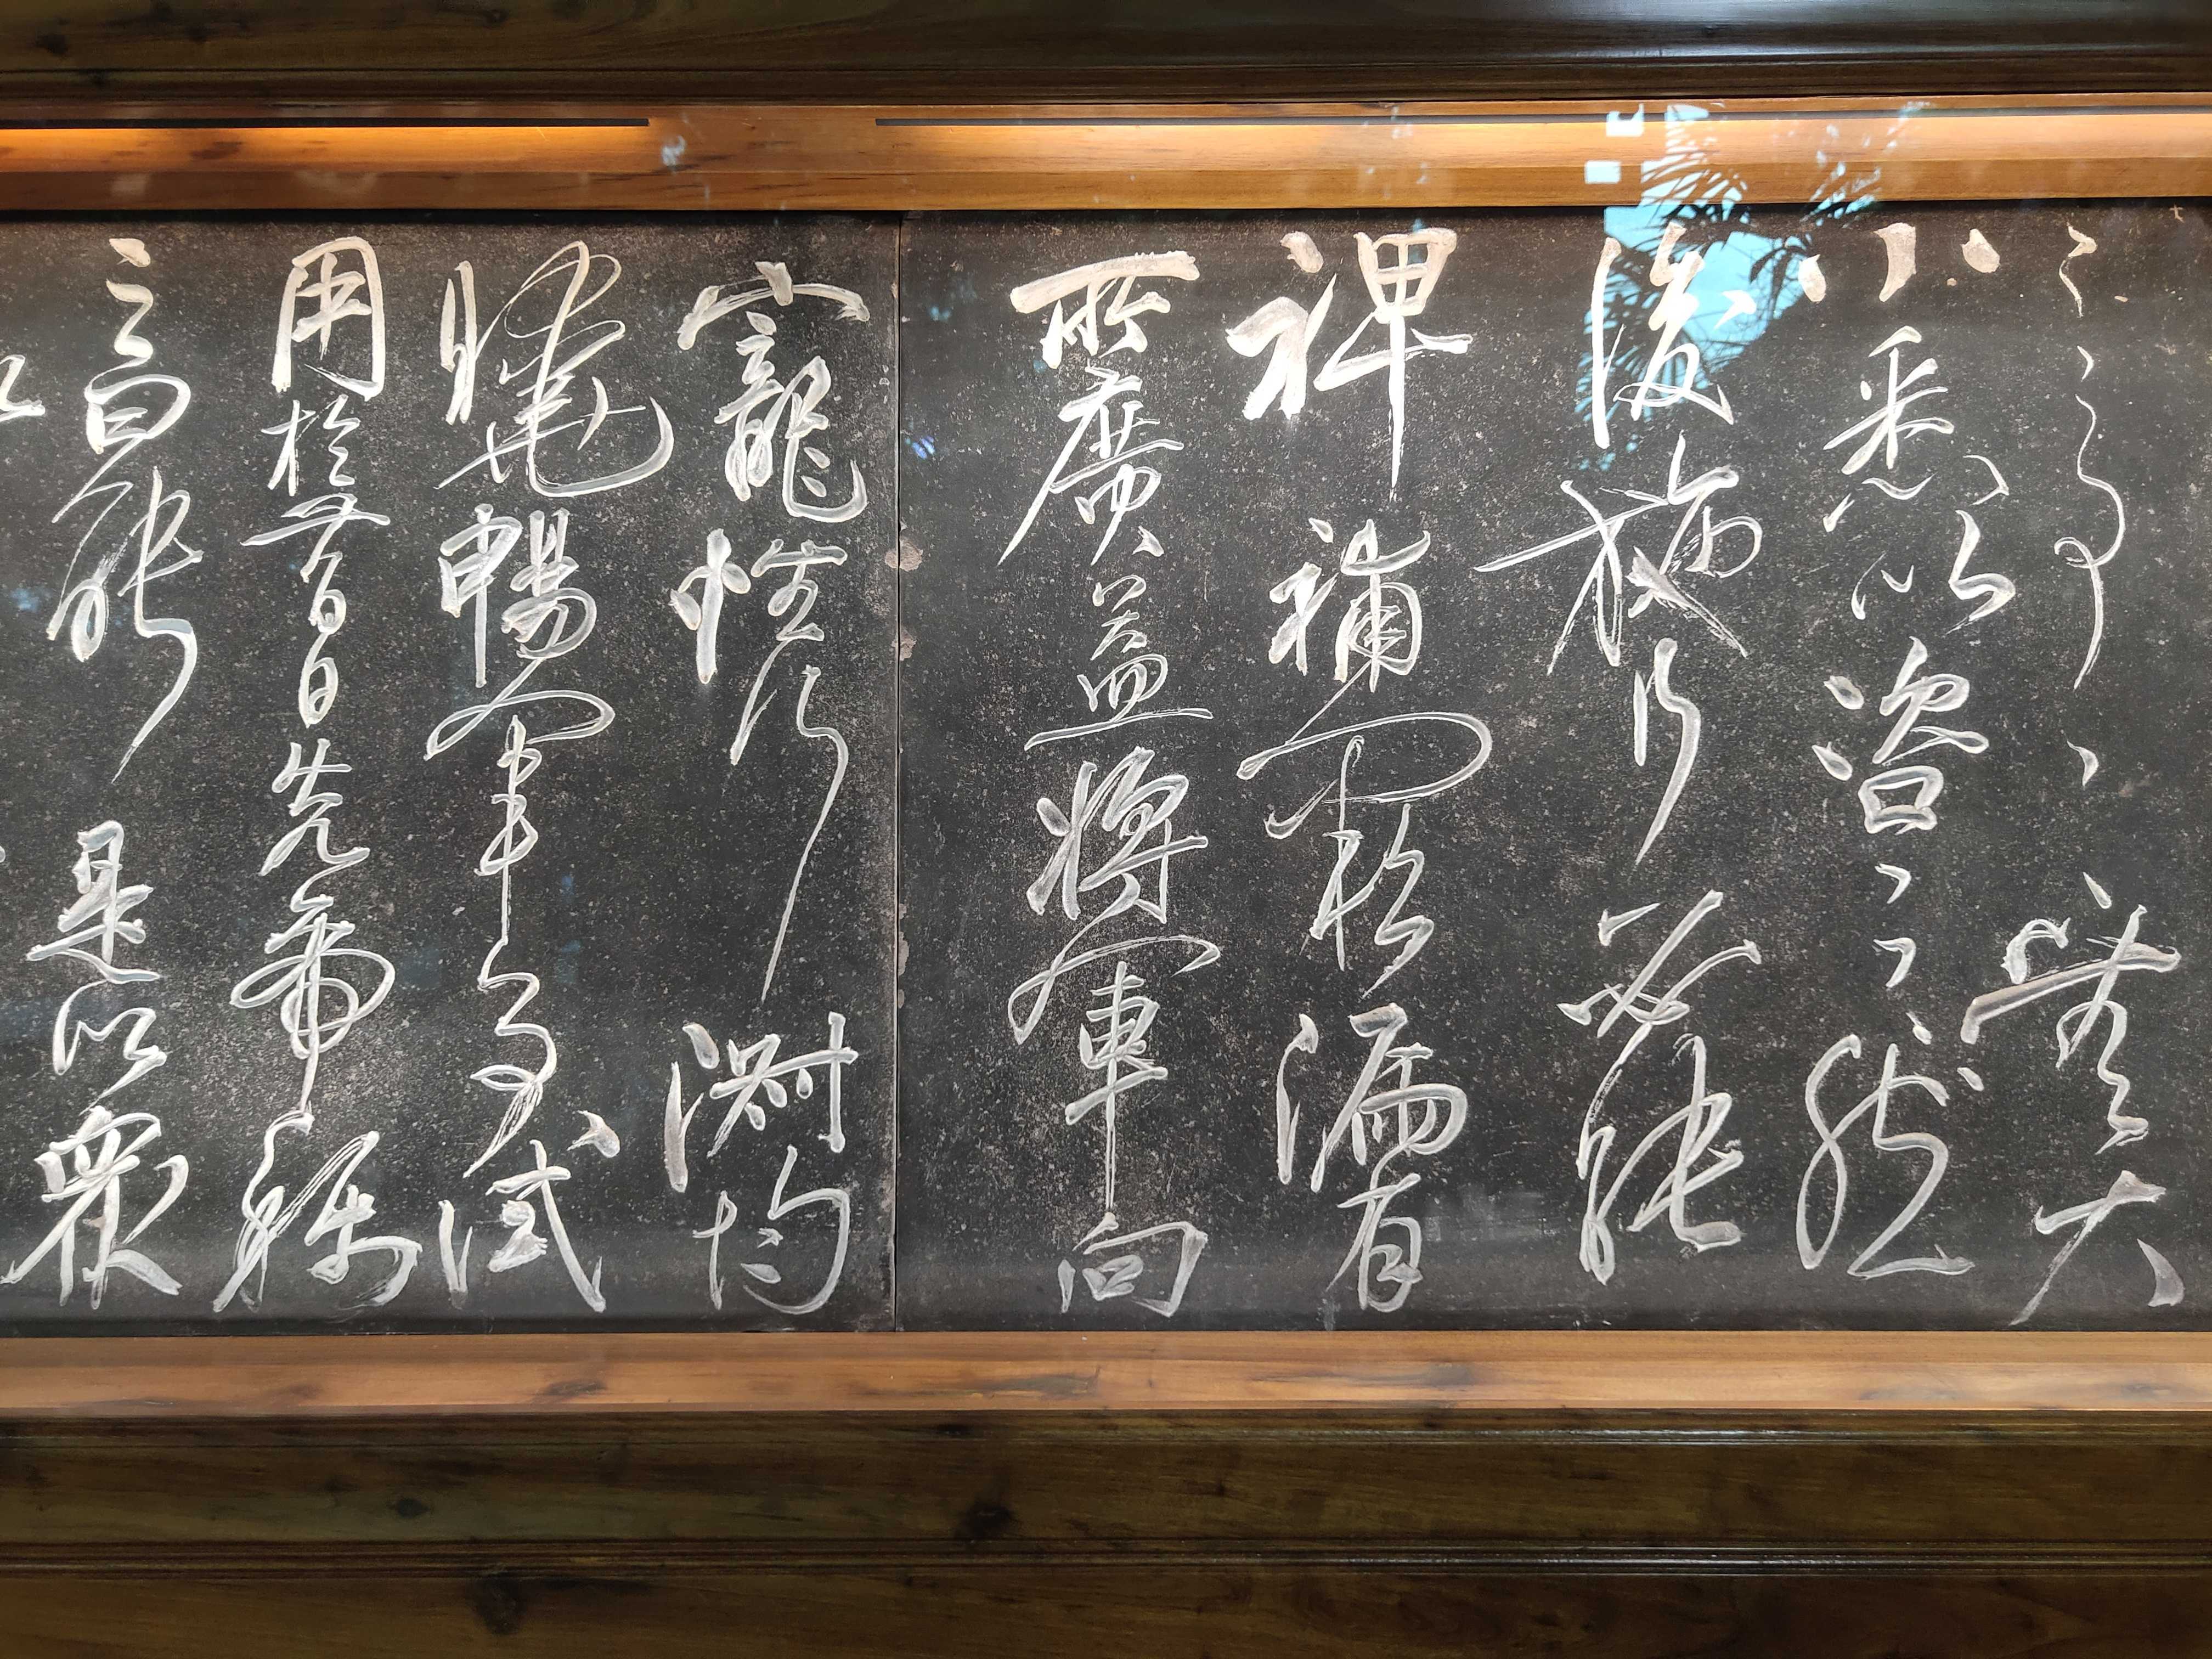 之事〻無大
小悉以咨之然
後施行必能
裨補闕漏有
所廣益將軍向
寵性行淑均
曉暢軍事試
用於昔日先帝稱
之曰能是以眾